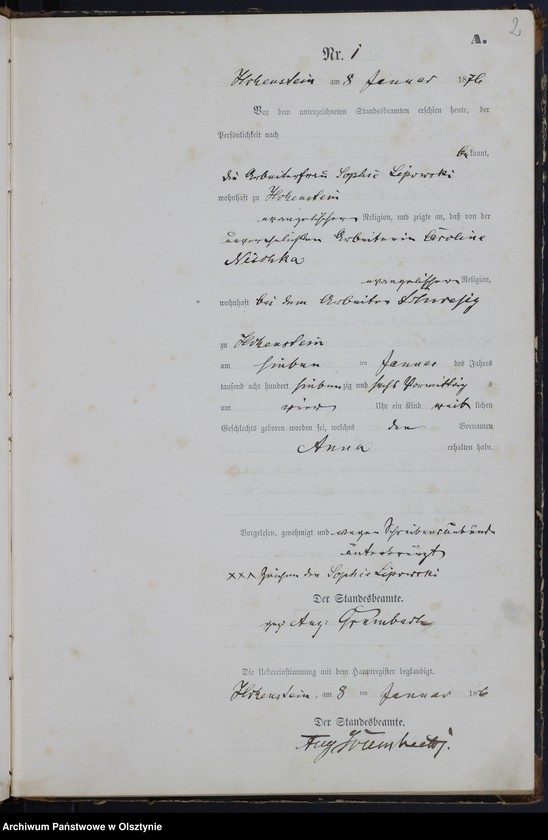 2
A.
Nr. 1
Hohenstein am 8 Januar 1876
Vor dem unterzeichneten Standesbeamten erschien heute, der
Persönlichkeit nach
bekannt,
die Arbeiterfrau Sophie Lipowski
wohnhaft zu Hohenstein
evangelischer Religion, und zeigte an, daß von der
unverehelichten Arbeiterin Caroline
evangelischer Religion,
wohnhaft bei dem Arbeiter
zu Hohenstein
am sieben ten Januar des Jahres
tausend acht hundert siebenzig und sechs Vormittag s
um vier Uhr ein Kind weiblichen
Geschlechts geboren worden sei, welches den Vornamen
Anna erhalten habe.
Vorgelesen, genehmigt und wegen Schreibensunkunde
unterkreuzt
xxx Zeichen der Sophie Lipowski
Der Standesbeamte.
gez. Aug:
Die Uebereinstimmung mit dem Hauptregister beglaubigt.
Hohenstein am 8 ten Januar 1876
Der Standesbeamte.
Aug
Archiwum Państwowe w Olsztynie